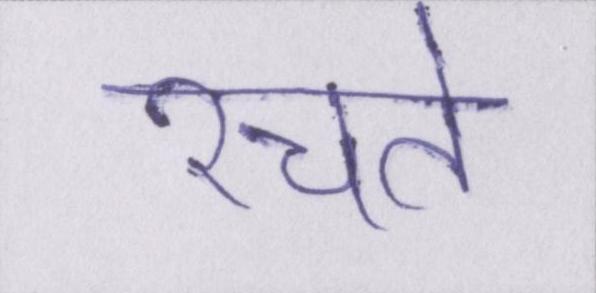 रचते